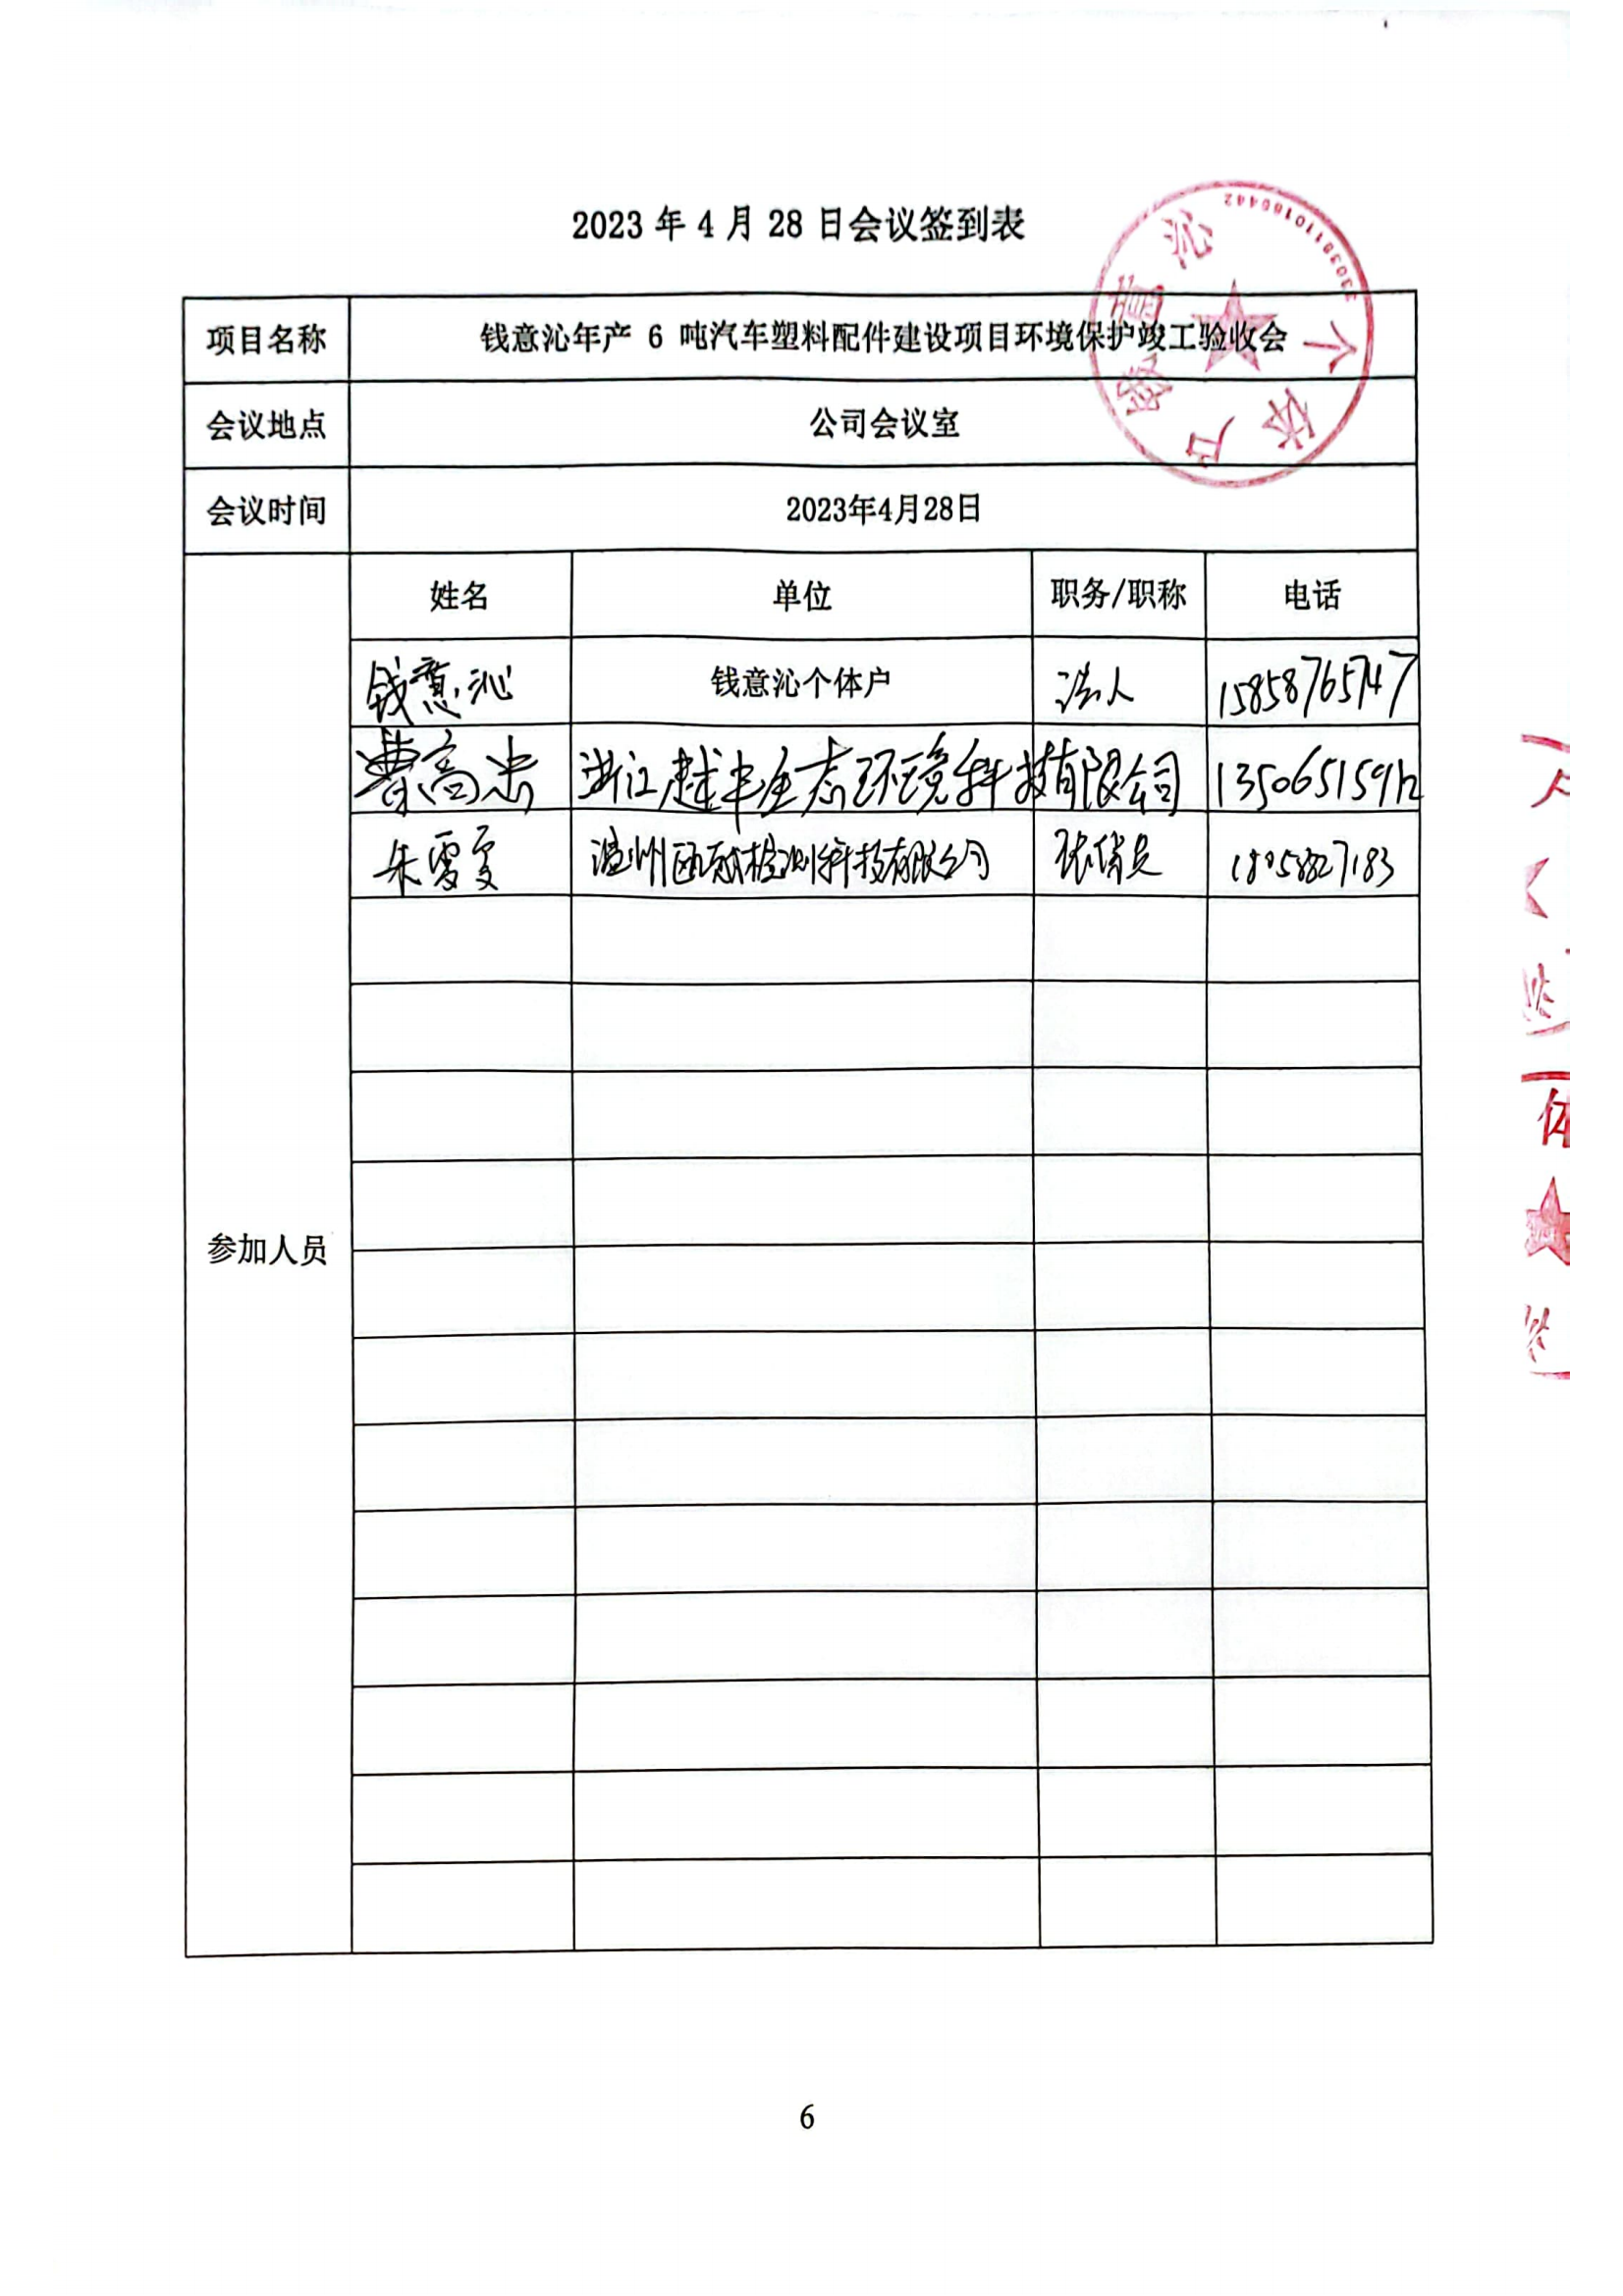 2023 年 4 月 28 日会议签到表
项目名称 钱意沁年产 6 吨汽车塑料配件建设项目环境保护竣工验收会
会议地点 公司会议室
会议时间 2023年4月28日
参加人员
姓名 单位 职务/职称 电话
钱意沁 钱意沁个体户 法人 15858765747
曹高 浙江越丰生态环境科技有限公司 135065159
朱雯 温州瓯 检测科技有限公司
个体户钱意沁
6